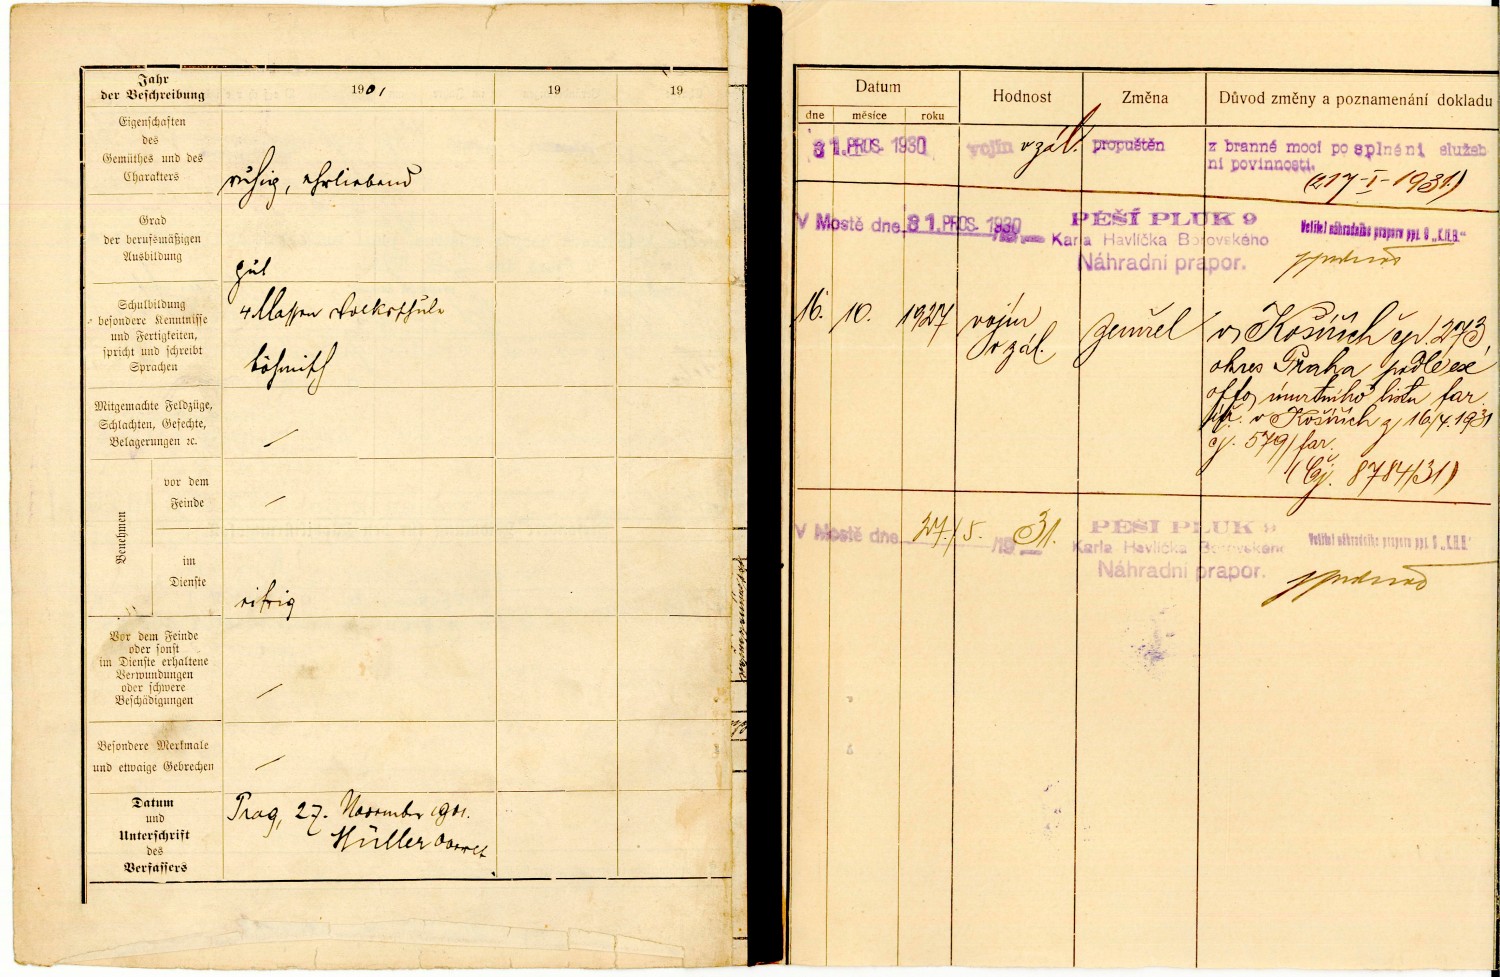 Jahr
der Beschreibung
1901
19
19
Eigenschaften
des
Gemüthes und des
Charakters
ruhig, ehrliebend
Grad
der berufsmäßigen
Ausbildung
gut
Schulbildung
besondere Kenntnisse
und Fertigkeiten,
spricht und schreibt
Sprachen
4 Klassen Volksschule
böhmisch
Mitgemachte Feldzüge,
Schlachten, Gefechte,
Belagerungen ꝛc.
—
Benehmen
vor dem
Feinde
—
im
Dienste
eifrig
Vor dem Feinde
oder sonst
im Dienste erhaltene
Verwundungen
oder schwere
Beschädigungen
—
Besondere Merkmale
und etwaige Gebrechen
—
Datum
und
Unterschrift
des
Verfassers
Prag, 27. November 1901.
Müller
Datum
dne
měsíce
roku
Hodnost
Změna
Důvod změny a poznamenání dokladu
31. PROS. 1930
vojín v zál.
propuštěn
z branné moci po splnění služeb
ní povinnosti.
(217-I-1931)
V Mostě dne 31. PROS. 1930
PĚŠÍ PLUK 9
Karla Havlíčka Borovského
Náhradní prapor.
Velitel náhradního praporu pp. 9 „K.H.B."
16. 10. 1927
vojín
v zál.
zemřel
v Košířích čp. 273,
okres Praha podle ex
offo úmrtního listu far.
úř. v Košířích z 16/4. 1931
čj. 579/far.
(Čj. 8784/31)
V Mostě dne 27./5. 1931.
PĚŠÍ PLUK 9
Karla Havlíčka Borovského
Náhradní prapor.
Velitel náhradního praporu pp. 9 „K.H.B."